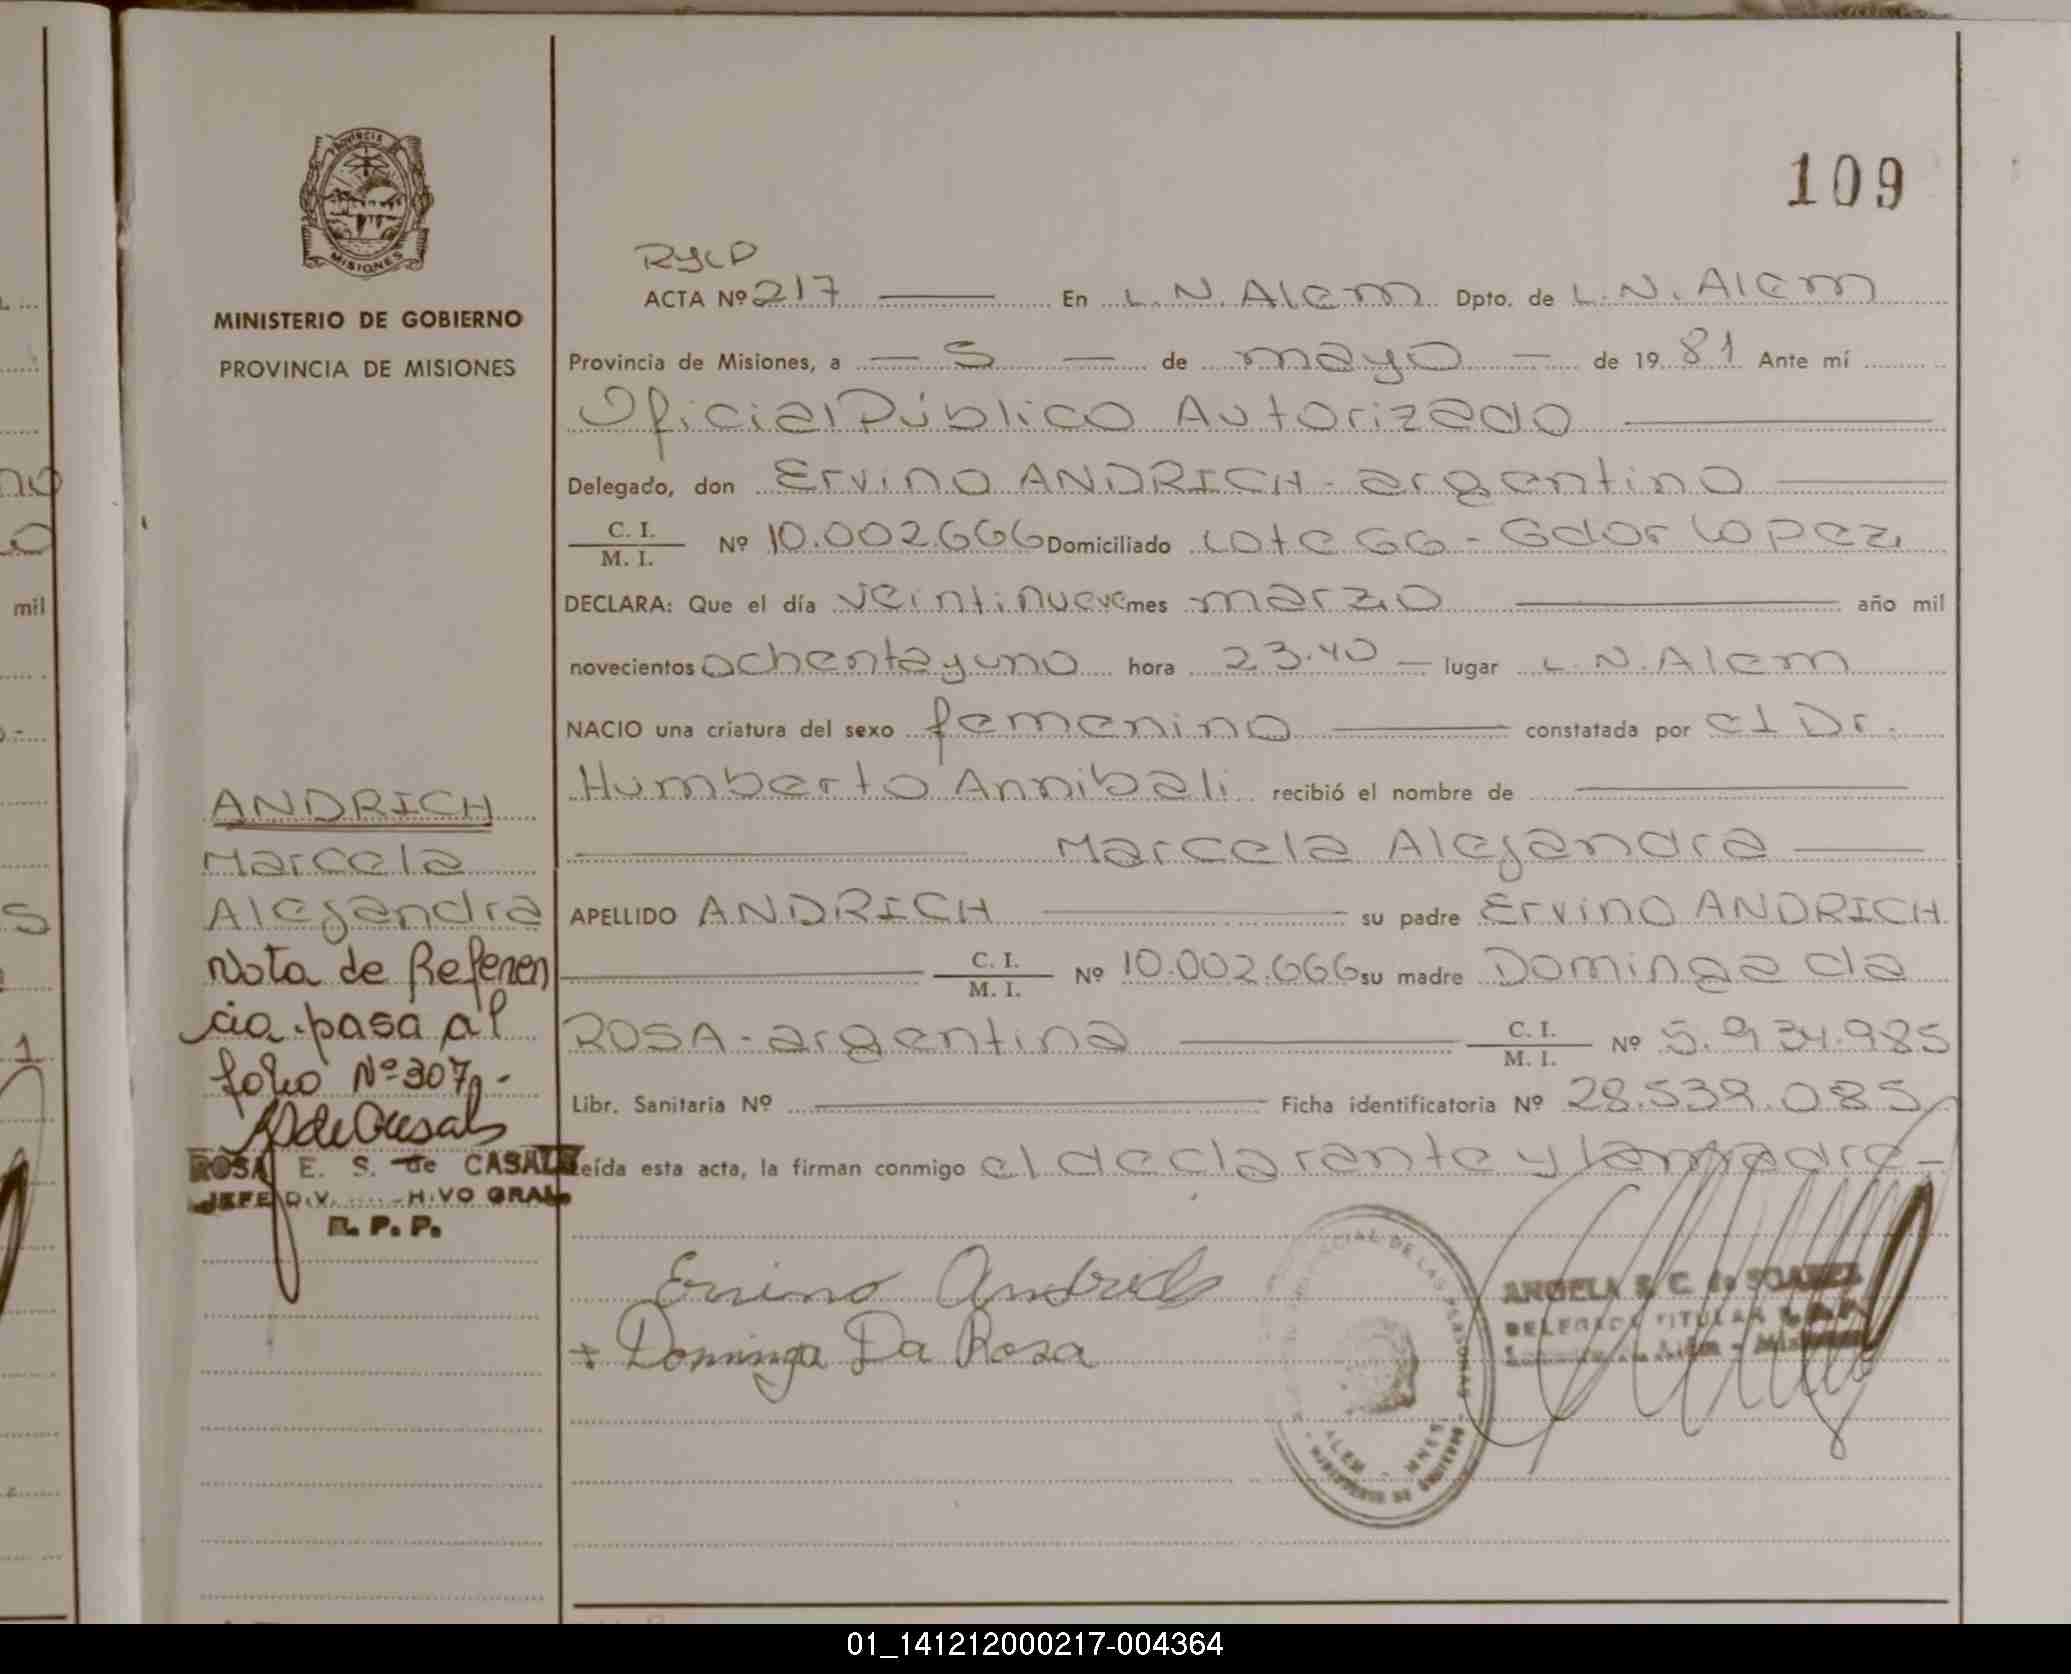 109
PROVINCIA
MISIONES
MINISTERIO DE GOBIERNO
PROVINCIA DE MISIONES
ANDRICH
Marcela
Alejandra
Nota de Referen
cia pasa al
folio Nº 307.-
ROSA E. S. de CASALS
JEFE DIV. HIVO GRAL.
R. P. P.
ACTA Nº 217 En L.N. Alem Dpto. de L.N. Alem
Provincia de Misiones, a 5 de mayo de 1981 Ante mí
Oficial Público Autorizado
Delegado, don Ervino ANDRICH - argentino
C. I. / M. I. Nº 10.002.666 Domiciliado Lote 66 - Gdor Lopez
DECLARA: Que el día veintinueve mes marzo año mil
novecientos ochenta y uno hora 23.40 lugar L.N. Alem
NACIO una criatura del sexo femenino constatada por el Dr.
Humberto Annibali recibió el nombre de
Marcela Alejandra
APELLIDO ANDRICH su padre Ervino ANDRICH
C. I. / M. I. Nº 10.002.666 su madre Dominga da
ROSA - argentina C. I. / M. I. Nº 5.934.985
Libr. Sanitaria Nº Ficha identificatoria Nº 28.539.085
Leída esta acta, la firman conmigo el declarante y la madre -
Ervino Andrich
+ Dominga Da Rosa
CIAL DE LAS PERSONAS
ALEM - MNES
MINISTERIO DE GOBIERNO
ANGELA S. C. de SOAREZ
DELEGADA TITULAR
01_141212000217-004364